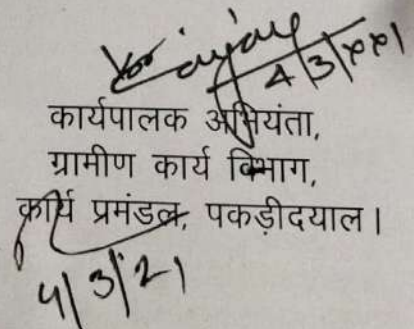 4/3/2021
कार्यपालक अभियंता,
ग्रामीण कार्य विभाग,
कार्य प्रमंडल, पकड़ीदयाल।
4/3/21